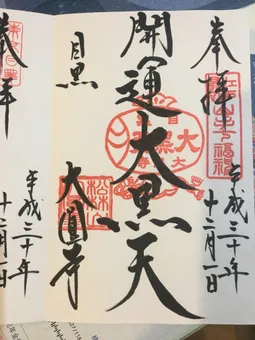 奉拝
平成三十年
十二月一日
開運大黒天
目黒
大圓寺
松林山
奉拝
平成三十年
十二月一日